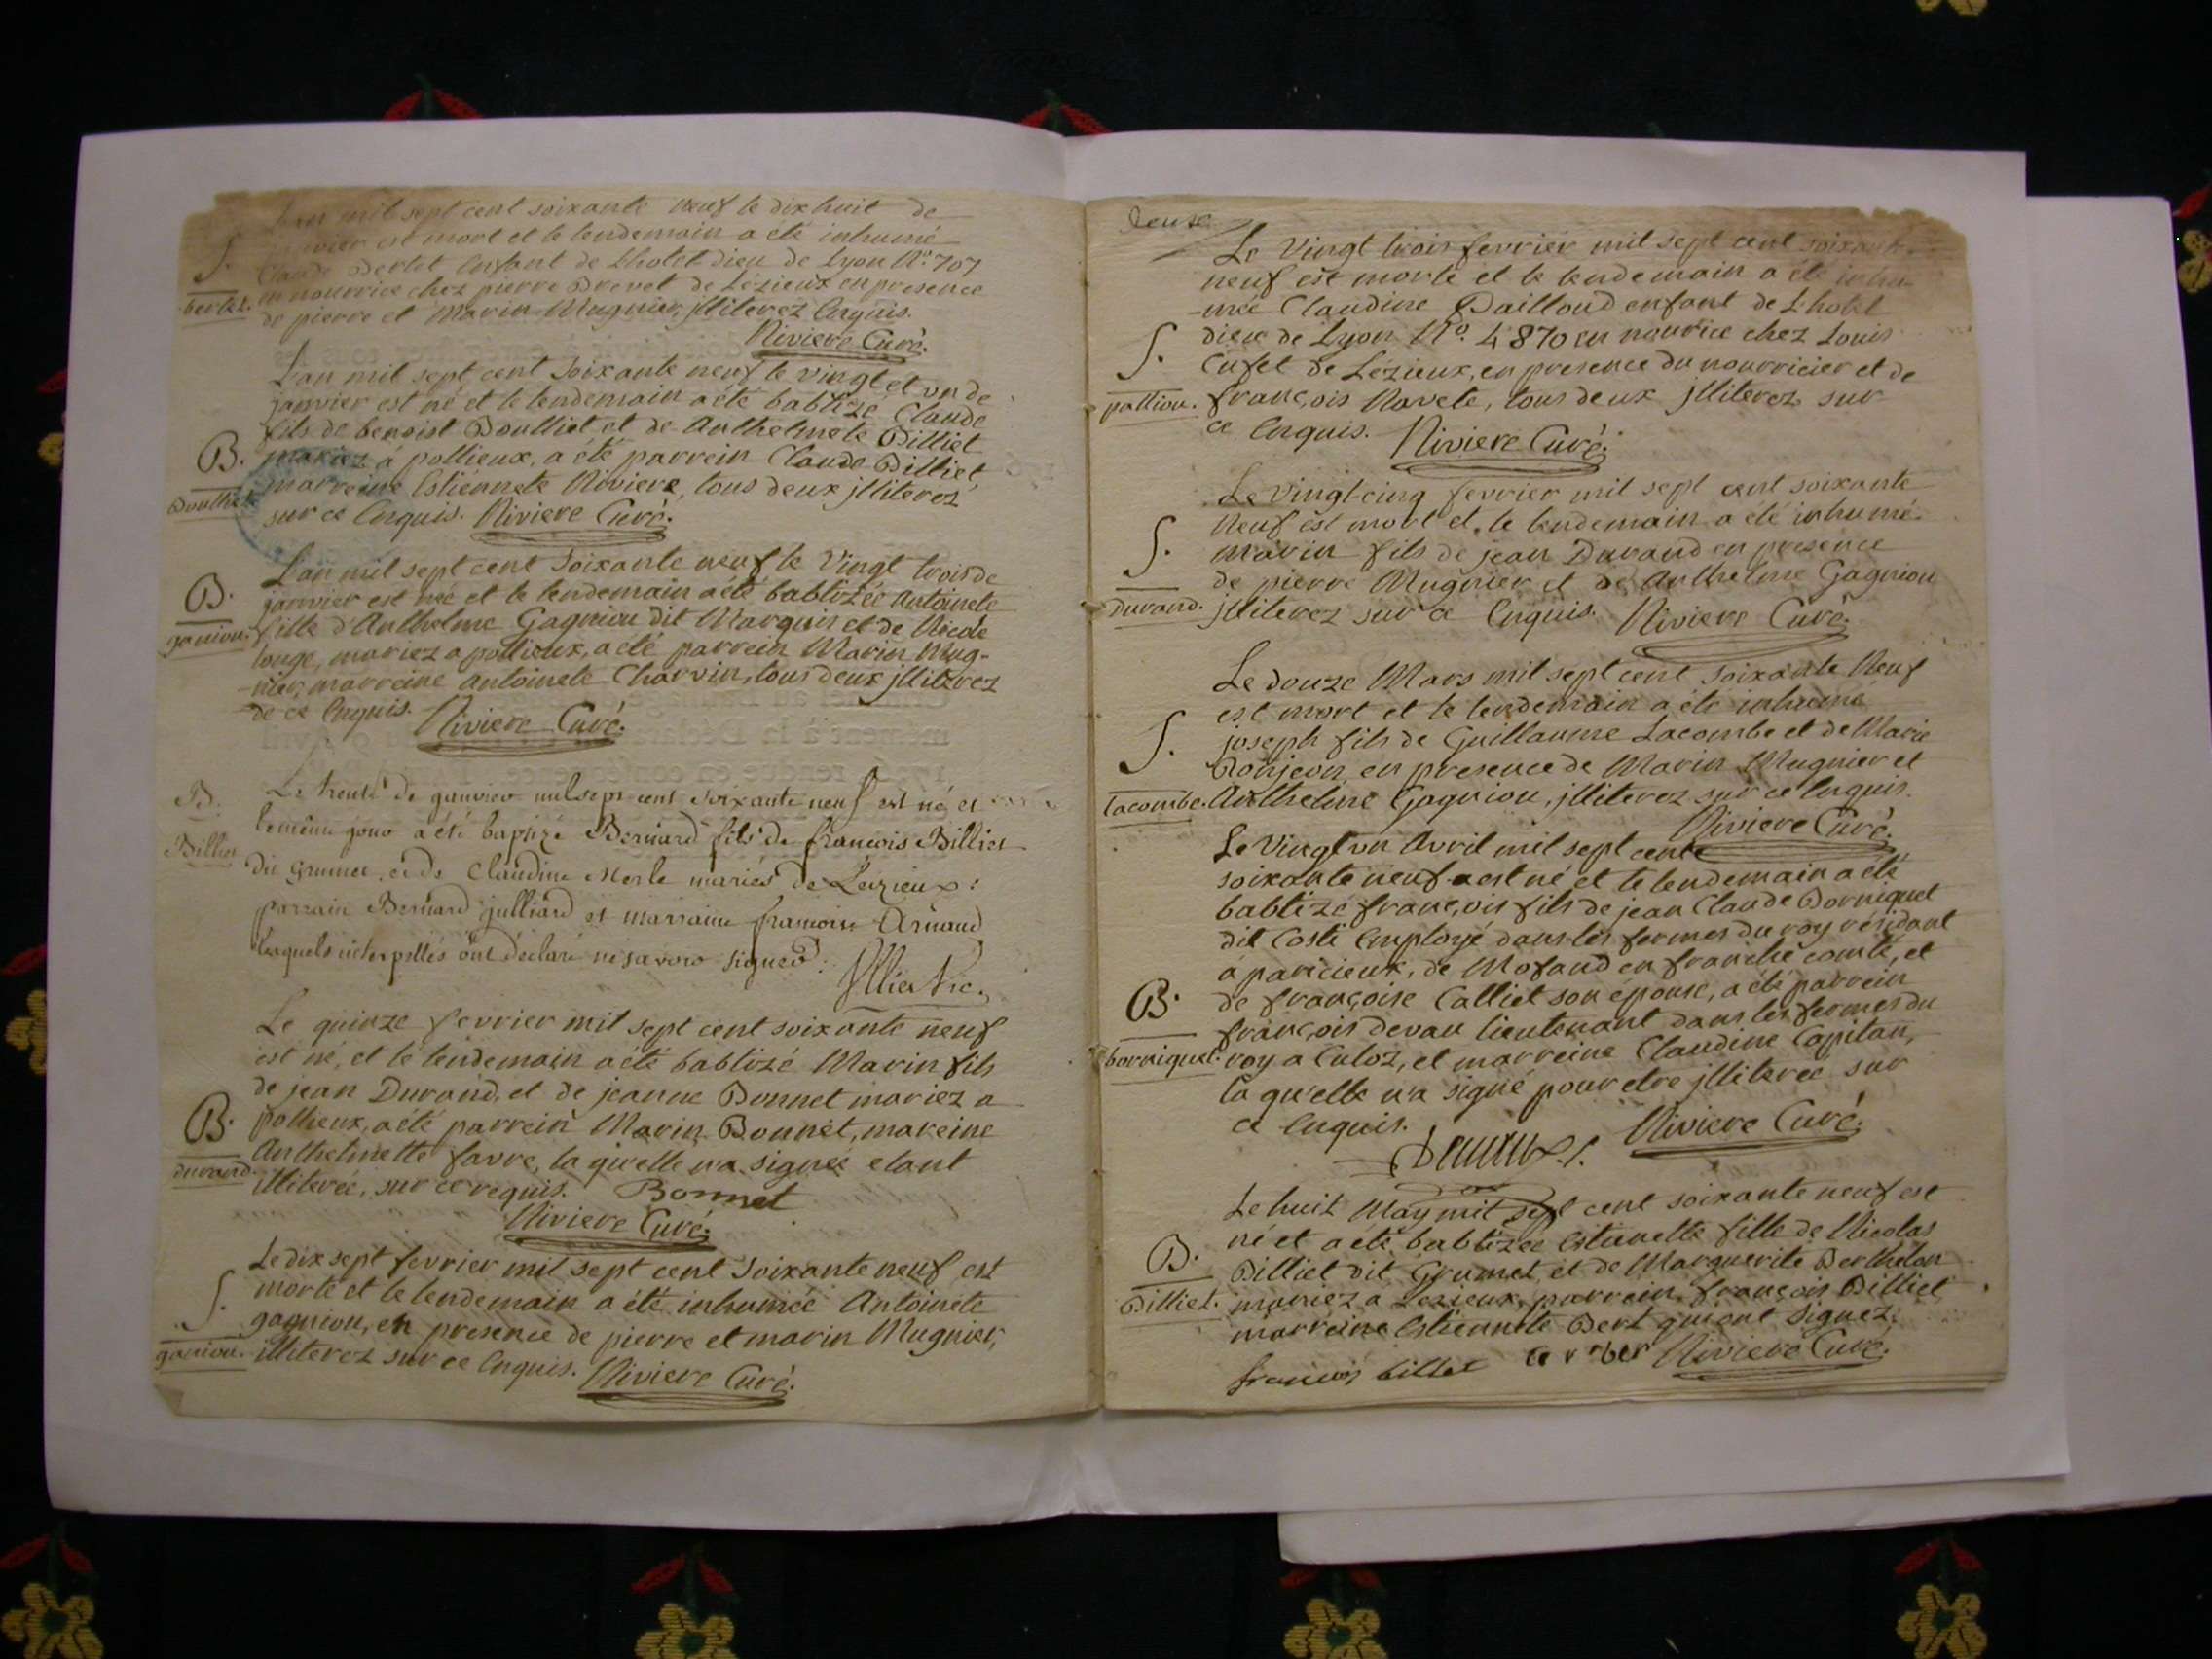 L'an mil sept cent soixante neuf le dix huit de
janvier est mort et le lendemain a été inhumé
S. Claude Bertet enfant de Lhotel dieu de Lyon N°. 707
bertet. en nourrice chez pierre Brevet de Lézieux en presence
de pierre et Marin Mugnier, jlliterez Enquis.
Riviere Curé.
L'an mil sept cent soixante neuf le vingt et un de
janvier est né et le lendemain a été babtizé Claude
fils de benoist Doulliet et de Anthelmete Billiet
B. mariez à pollieux, a été parrein Claude Billiet
Doulliet marreine Estiennete Riviere, tous deux jlliterez
sur ce Enquis. Riviere Curé.
L'an mil sept cent soixante neuf le vingt trois de
B. janvier est née et le lendemain a été babtizée Antoinete
ganiou. fille d'Anthelme Gagniou dit Marquis et de Nicole
louge, mariez a pollieux, a été parrein Marin Mug-
-nier, marreine antoinete Charvin, tous deux jlliterez
de ce Enquis. Riviere Curé.
B. Le trente de janvier mil sept cent soixante neuf est né et
le même jour a été baptizé Bernard fils de francois Billiet
Billiet dit Grumet, et de Claudine Merle mariés de Lézieux:
parrain Bernard julliard et marraine francoise Arnaud
lesquels interpellés ont déclaré ne savoir signer:
Vic.
Le quinze fevrier mil sept cent soixante neuf
est né, et le lendemain a été babtizé Marin fils
de jean Durand, et de jeanne Bonnet mariez a
B. pollieux, a été parrein Marin Bonnet, mareine
durand. Anthelmette favre, la qu'elle n'a signée etant
illiterée, sur ce requis. Bonnet
Riviere Curé.
Le dix sept fevrier mil sept cent soixante neuf est
morte et le lendemain a été inhumée Antoinete
S. gagniou, en presence de pierre et marin Mugnier,
ganiou. illiterez sur ce Enquis. Riviere Curé.
deuxe
Le vingt trois fevrier mil sept cent soixante
neuf est morte et le lendemain a été inhu-
-mée Claudine Pailloud enfant de L'hotel
S. dieu de Lyon N°. 4870 en nourice chez Louis
Cufet de Lézieux, en presence du nourricier et de
palliou. françois Navete, tous deux jlliterez sur
ce Enquis. Riviere Curé.
Le vingt cinq fevrier mil sept cent soixante
neuf est mort et le lendemain a été inhumé
S. marin fils de jean Durand en presence
de pierre Mugnier et de Anthelme Gagniou
durand. jlliterez sur ce Enquis. Riviere Curé.
Le douze Mars mil sept cent soixante Neuf
est mort et le lendemain a été inhumé
S. joseph fils de Guillaume Lacombe et de Marie
Donjeon, en presence de Marin Mugnier et
lacombe. Anthelme Gagniou, jlliterez sur ce Enquis.
Riviere Curé.
Le vingt un Avril mil sept cent
soixante neuf est né et le lendemain a été
babtizé françois fils de jean Claude Borniquet
dit Costi Employé dans les fermes du roy résidant
a paricieux, de Mofand en franche comté, et
B. de françoise Calliet son épouse, a été parrein
françois devau lieutenant dans les fermes du
borniquet. roy a Culoz, et marreine Claudine Capitan,
la qu'elle n'a signé pour etre jlliterée sur
ce Enquis. Riviere Curé.
Le huit May mil sept cent soixante neuf est
né et a été babtizée Estienette fille de Nicolas
B. Billiet dit Grumet, et de Marguerite Berthelon
Billiet. mariez a Lezieux, parrein françois Billiet
marreine Estiennete Bert qui ont signez.
francois billet Riviere Curé.